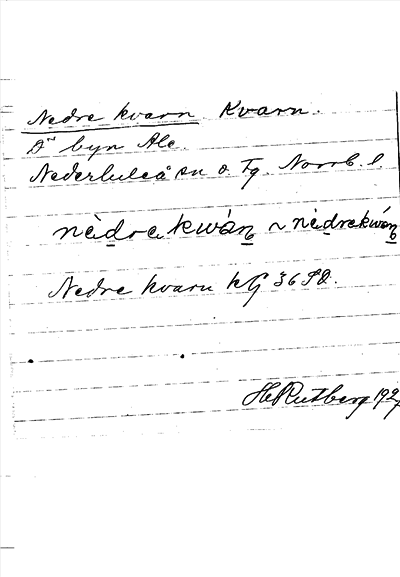 Nedre kvarn. Kvarn.
D:o byn Ale.
Nederluleå sn o. Tg. Norrb. l.
nèdrekwán ~ nèdrekwán
Nedre kvarn kG 36
H Rutberg 192